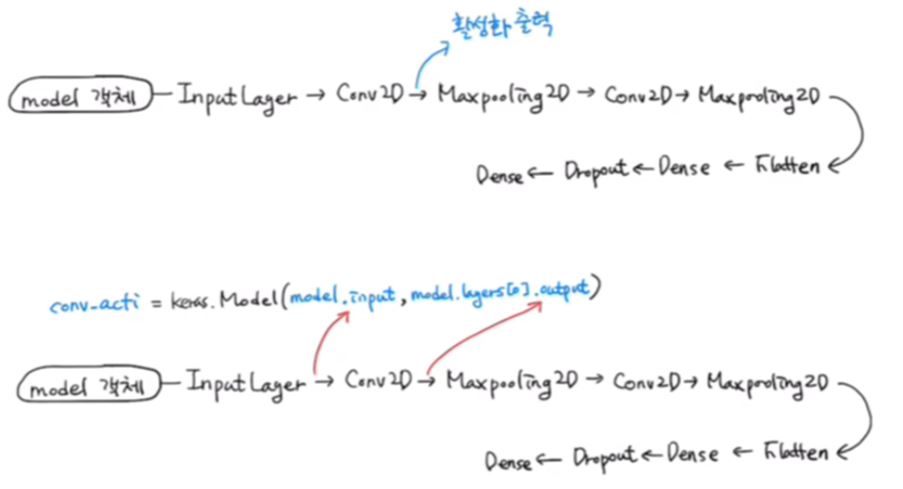 활성화 출력
model 객체 — InputLayer → Conv2D → Maxpooling2D → Conv2D → Maxpooling2D
Dense ← Dropout ← Dense ← Flatten
conv-acti = keras.Model(model.input, model.layers[0].output)
model 객체 — InputLayer → Conv2D → Maxpooling2D → Conv2D → Maxpooling2D
Dense ← Dropout ← Dense ← Flatten